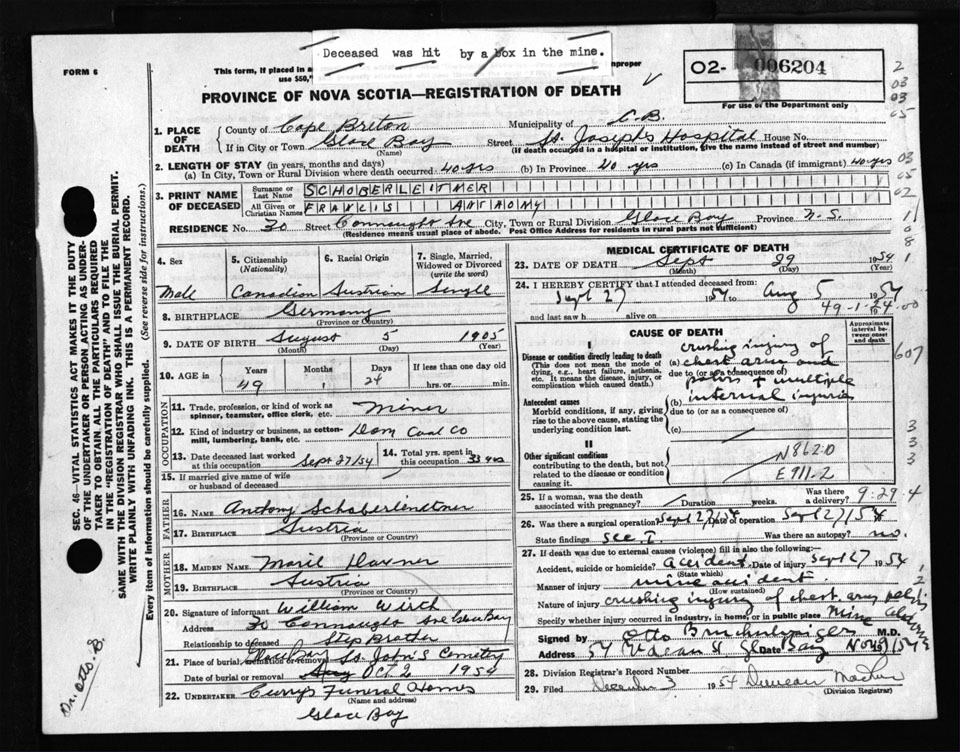 Deceased was hit by a box in the mine.
FORM 6
This form, if placed in a
improper
use $50,
02- 006204
For use of the Department only
PROVINCE OF NOVA SCOTIA—REGISTRATION OF DEATH
1. PLACE OF DEATH
County of Cape Breton Municipality of C.B.
If in City or Town Glace Bay Street St. Josephs Hospital House No.
(Name) (If death occurred in a hospital or institution, give the name instead of street and number)
2. LENGTH OF STAY (in years, months and days)
(a) In City, Town or Rural Division where death occurred 40 yrs (b) In Province 40 yrs (c) In Canada (if immigrant) 40 yrs
3. PRINT NAME OF DECEASED
Surname or Last Name SCHOBERLEITNER
All Given or Christian Names FRANCIS ANTHONY
RESIDENCE No. 30 Street Connaught Ave City, Town or Rural Division Glace Bay Province N.S.
(Residence means usual place of abode. Post Office Address for residents in rural parts not sufficient)
4. Sex
Male
5. Citizenship (Nationality)
Canadian
6. Racial Origin
Austrian
7. Single, Married, Widowed or Divorced (write the word)
Single
8. BIRTHPLACE Germany
(Province or Country)
9. DATE OF BIRTH August 5 1905
(Month) (Day) (Year)
10. AGE in
Years Months Days If less than one day old
49 1 24 hrs. or min.
OCCUPATION
11. Trade, profession, or kind of work as spinner, teamster, office clerk, etc. Miner
12. Kind of industry or business, as cotton-mill, lumbering, bank, etc. Dom Coal Co
13. Date deceased last worked at this occupation Sept 27/54
14. Total yrs. spent in this occupation 33 yrs
15. If married give name of wife or husband of deceased
FATHER
16. Name Anthony
17. Birthplace Austria
(Province or Country)
MOTHER
18. Maiden Name
19. Birthplace Austria
(Province or Country)
20. Signature of informant William Wirch
Address 30 Connaught Ave Glace Bay
Relationship to deceased Step Brother
21. Place of burial, cremation or removal Glace Bay St. John's Cemetery
Date of burial or removal Oct 2 1954
22. UNDERTAKER Curry's Funeral Homes
(Name and address)
Glace Bay
MEDICAL CERTIFICATE OF DEATH
23. DATE OF DEATH Sept 29 1954
(Month) (Day) (Year)
24. I HEREBY CERTIFY that I attended deceased from:
Sept 27 1954 to Aug 5 1954
and last saw h alive on 49-1-24 19 00
CAUSE OF DEATH
Approximate interval between onset and death
I
Disease or condition directly leading to death
(This does not mean the mode of dying, e.g., heart failure, asthenia, etc. It means the disease, injury, or complication which caused death.)
(a) crushing injury of chest arms and
due to (or as a consequence of)
pelvis + multiple
Antecedent causes
Morbid conditions, if any, giving rise to the above cause, stating the underlying condition last.
(b) internal injuries
due to (or as a consequence of)
(c)
II
Other significant conditions contributing to the death, but not related to the disease or condition causing it.
N862-0
E911-2
25. If a woman, was the death associated with pregnancy? Duration weeks. Was there a delivery? 9-29-4
26. Was there a surgical operation? Sept 27/54 Date of operation Sept 27/54
State findings See I. Was there an autopsy? no.
27. If death was due to external causes (violence) fill in also the following:
Accident, suicide or homicide? Accident Date of injury Sept 27 1954
(State which)
Manner of injury mine accident
(How sustained)
Nature of injury crushing injury of chest arms pelvis
Specify whether injury occurred in industry, in home, or in public place Mine
Signed by Otto M.D.
Address 54 McLean St Gl Bay Date Nov
28. Division Registrar's Record Number
29. Filed December 3 1954 Duncan
(Division Registrar)
2
03
03
05
03
05
02
11
0
8
1
607
3
3
3
1
2
SEC. 46—VITAL STATISTICS ACT MAKES IT THE DUTY
OF THE UNDERTAKER OR PERSON ACTING AS UNDER-
TAKER TO OBTAIN ALL THE PARTICULARS REQUIRED
IN THE "REGISTRATION OF DEATH" AND TO FILE THE
SAME WITH THE DIVISION REGISTRAR WHO SHALL ISSUE THE BURIAL PERMIT.
WRITE PLAINLY WITH UNFADING INK. THIS IS A PERMANENT RECORD.
Every item of information should be carefully supplied. (See reverse side for instructions.)
Dr. Otto. B.